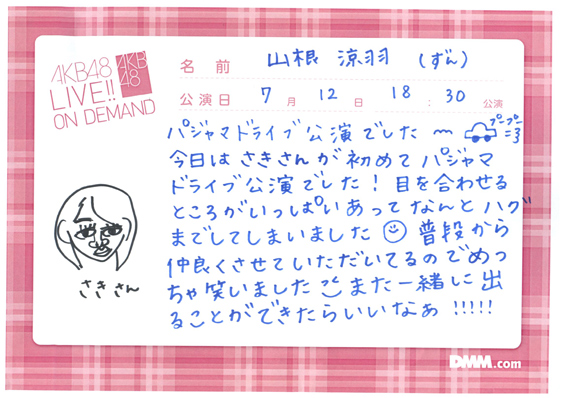 AKB48
LIVE!!
ON DEMAND
AKB
48
名前 山根 涼羽 (ずん)
公演日 7月 12日 18:30公演
パジャマドライブ公演でした〜 プープー
今日はさきさんが初めてパジャマ
ドライブ公演でした!目を合わせる
ところがいっぱいあってなんとハグ
までしてしまいました 普段から
仲良くさせていただいてるのでめっ
ちゃ笑いました また一緒に出
ることができたらいいなぁ!!!!!
さきさん
DMM.com